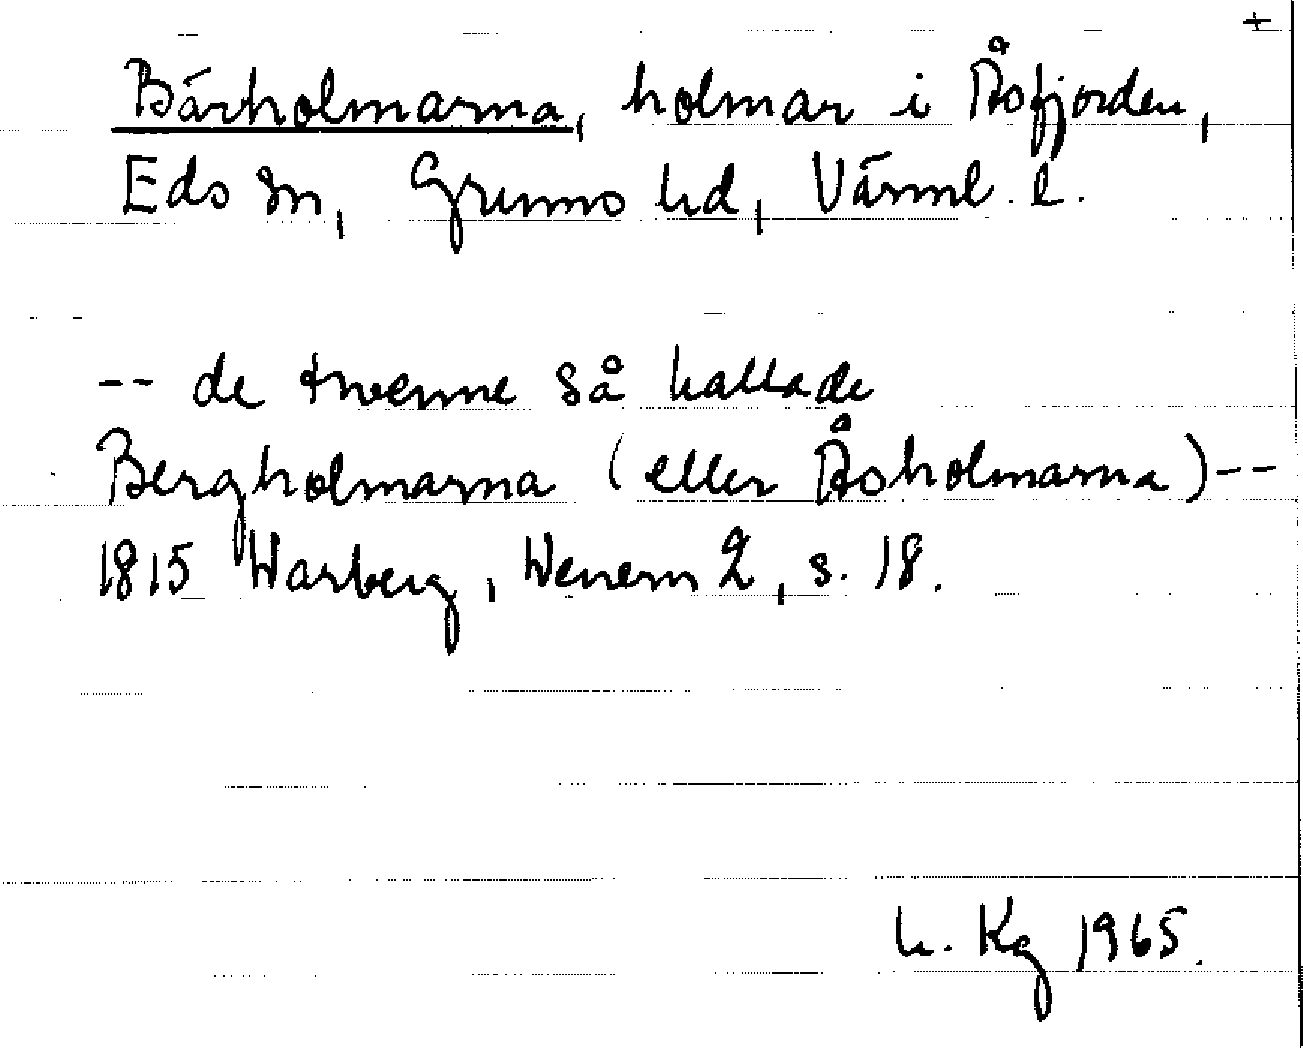 +
Bärholmarna, holmar i Åsfjorden,
Eds sn, Grums hd, Värml. l.
-- de twenne så kallade
Bergholmarna (eller Åsholmarna) --
1815 Warberg, Wenern 2, s. 18.
h. Kg 1965.